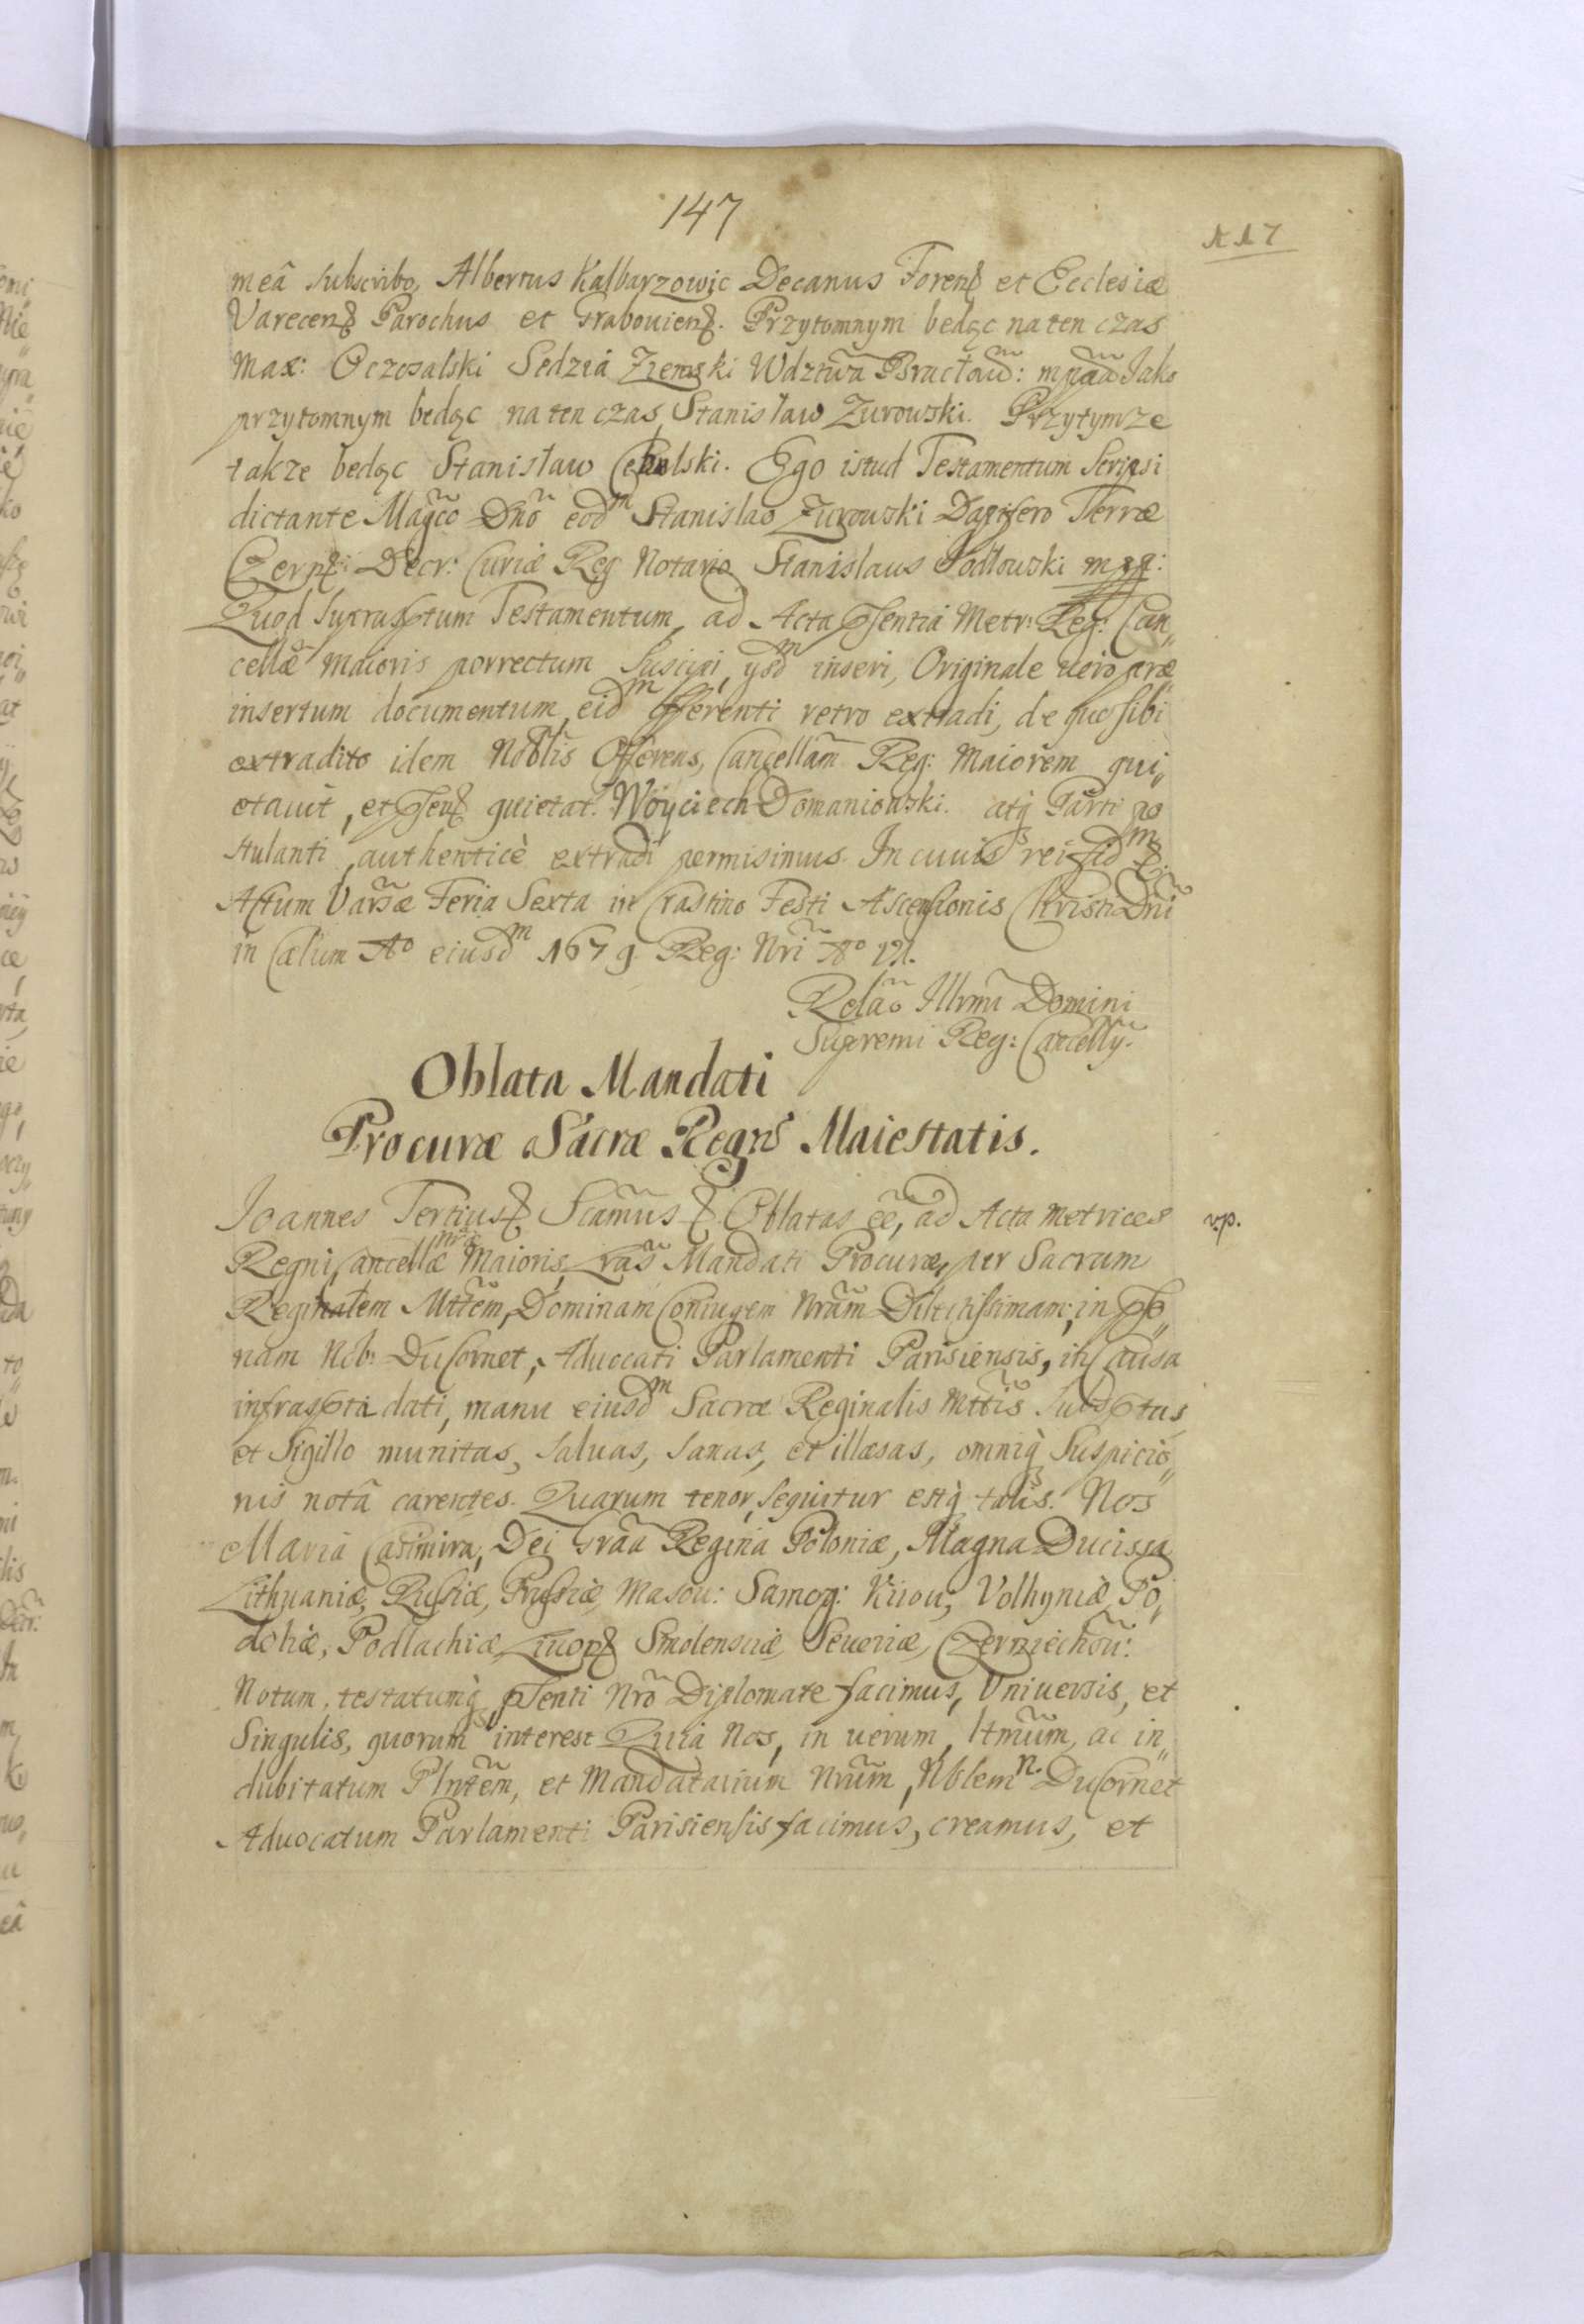 147
meâ subscribo, Albertus Kalbarzowic Decanus Forens et Ecclesiæ
Varecens Parochus et Grabouiens. Przytomnym będąc na ten czas
Max: Oczosalski Sedzia Ziemski Wdztwa Bracław: mpaa Jako
przytomnym będąc na ten czas Stanisław Zurowski. Przytymze
takze będąc Stanisław Ego istud Testamentum Scripsi
dictante Magco Dno eodm Stanislao Zurowski Dapifero Terræ
Czerns: Decr: Curiæ Reg Notario Stanislaus Podłowski mpp:
Quod suprasptum Testamentum, ad Acta psentia Metr: Reg: Can„
cellæ Maioris porrectum suscipi, ysdm inseri, Originale uero præ„
insertum documentum, eidm Offerenti retro extradi, de quo sibi
extradito idem Noblis Offerens, Cancellam Reg: Maiorem qui„
etauit, et psens quietat. Woyciech Domaniowski. atq Parti po
stulanti, authenticè extradi permisimus. In cuius rei fidm &
Actum Varsæ Feria Sexta in Crastino Festi Ascensionis Christi Dni
in Cælum Ao eiusdm 1679 Reg: Nri Ao VI.
Relao Illrmi Domini
Supremi Reg: Cancelly.
Oblata Mandati
Procuræ Sacræ Regns Maiestatis.
Joannes Tertius & Scamus & Oblatas eē, ad Acta metrices v.p.
Regni Cancellæ nræ Maioris, Lras Mandati Procuræ, per Sacram
Reginalem Mttem, Dominam Coniugem Nram Dilectissimam, in pso„
nam Nob: DuCornet, Aduocati Parlamenti Parisiensis, in Causa
infraspta dati, manu eiusdm Sacræ Reginalis Mttis subsptas
et Sigillo munitas, saluas, sanas, et illæsas, omniq Suspicio„
nis notâ carentes. Quarum tenor sequitur estq talis. Nos
Maria Casimira, Dei Graa Regina Poloniæ, Magna Ducissa
Lithuaniæ, Rusiæ, Prusiæ, Masou: Samog: Kiiou, Volhyniæ, Po„
doliæ, Podlachiæ, Liuons Smolensciæ, Seueriæ, Czerniechou:
Notum, testatumq, psenti Nro Diplomate facimus, Vniuersis, et
Singulis, quorum interest Quia Nos, in uerum, ltmum, ac in„
dubitatum Plntem, et Mandatarium Nrum, Nblem n. DuCornet
Aduocatum Parlamenti Parisiensis facimus, creamus, et